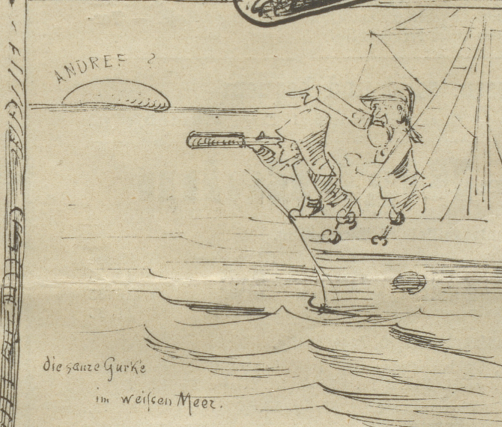 ANDREE ?
die saure Gurke
im weiſsen Meer.